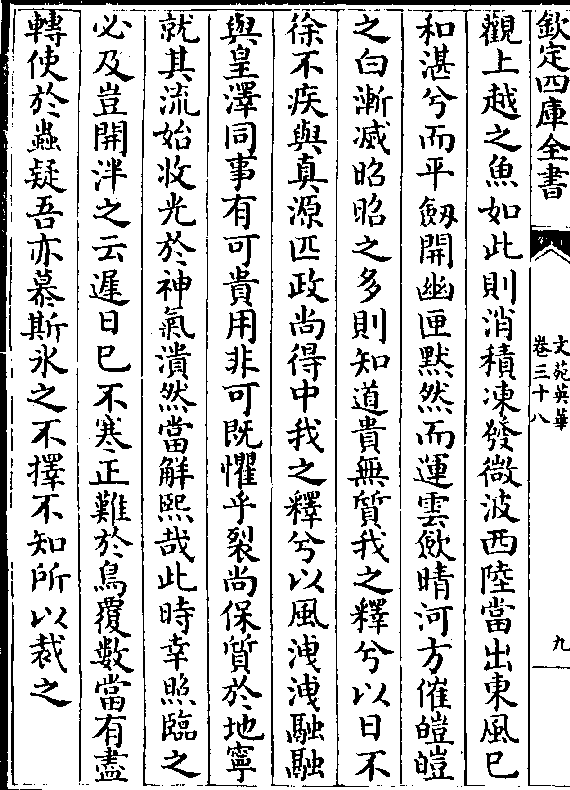 欽定四庫全書
文苑英華
卷三十八
九
觀上越之魚如此則消積凍發微波西陸當出東風已
和湛兮而平劔開幽匣默然而運雲斂晴河方催皚皚
之白漸減昭昭之多則知道貴無質我之釋兮以日不
徐不疾與真源匹政尚得中我之釋兮以風洩洩融融
與皇澤同事有可貴用非可既懼乎裂尚保質於地寧
就其流始收光於神氣潰然當解熙哉此時幸照臨之
必及豈開泮之云遲日巳不寒正難於鳥覆數當有盡
轉使於蟲疑吾亦慕斯氷之不擇不知所以裁之